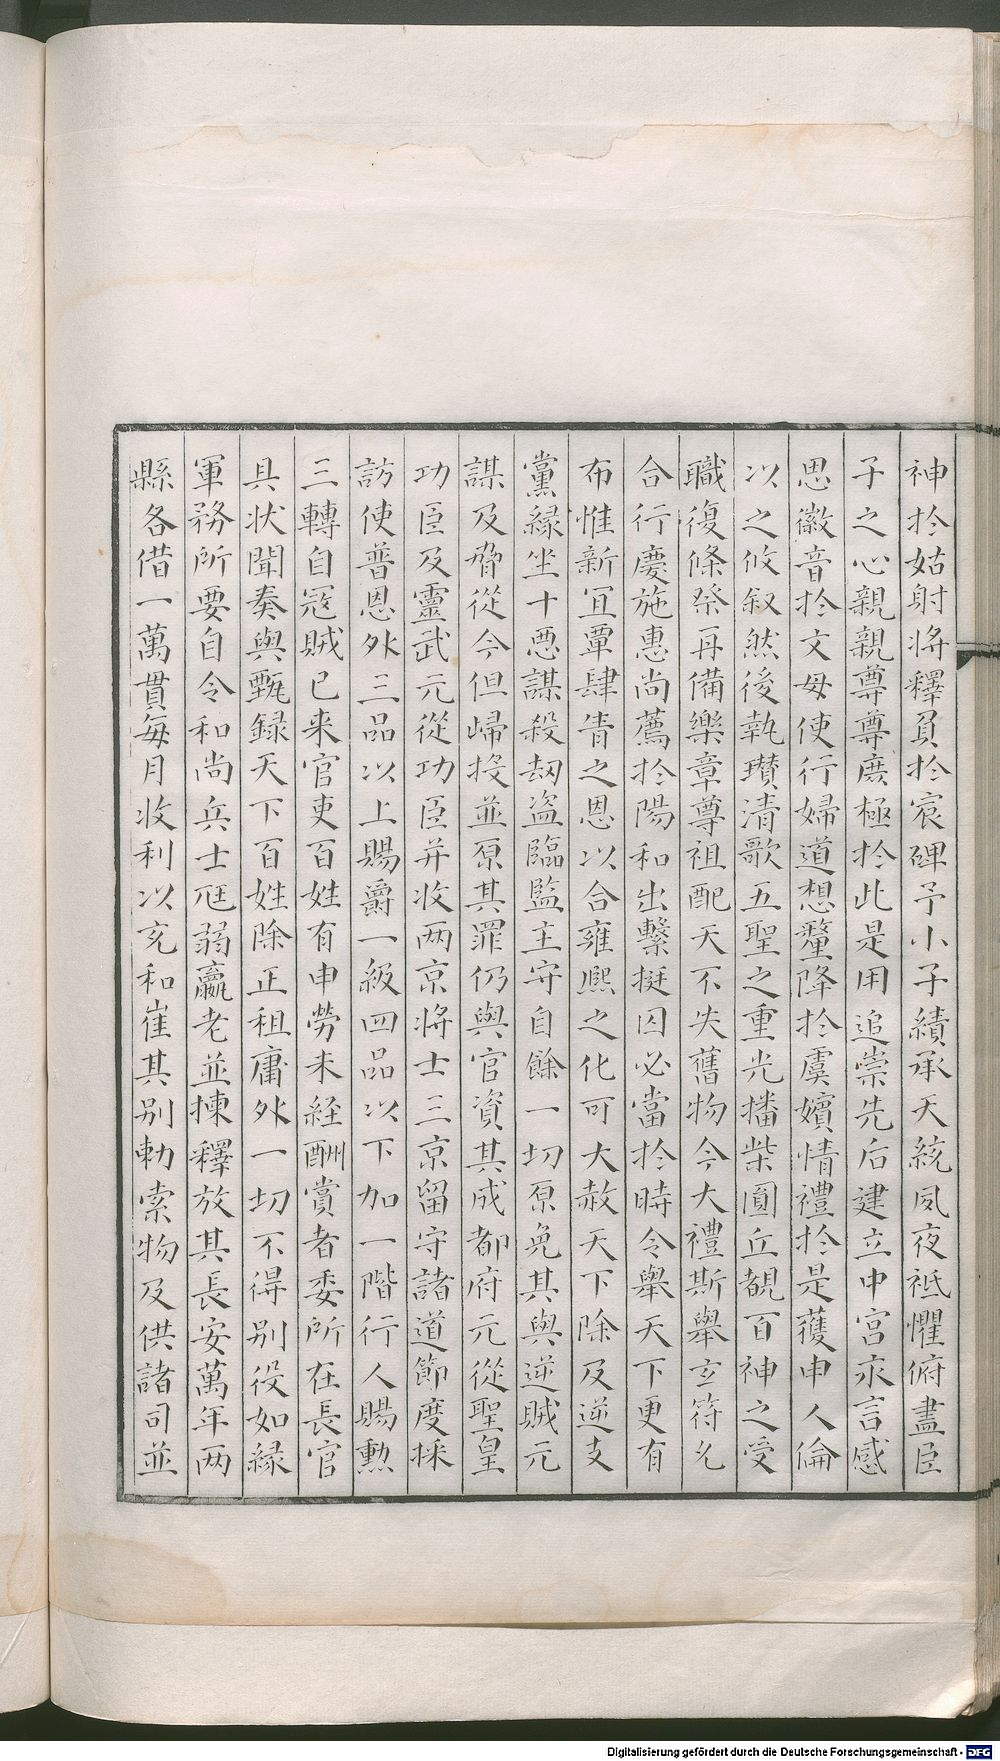 神扵姑射将釋負扵宸碑予小子績承天統夙夜祗懼俯盡臣
子之心親親尊尊庶極扵此是用追崇先后建立中宫永言感
思徽音扵文母使行婦道想釐降扵虞嬪情禮扵是獲申人倫
以之攸叙然後執瓚清歌五聖之重光播柴圓丘覩百神之受
職復條祭再備樂章尊祖配天不失舊物今大禮斯舉玄符允
合行慶施惠尚薦扵陽和出繫挺囚必當扵時令舉天下更有
布惟新宜覃肆眚之恩以合雍熈之化可大赦天下除及逆支
黨緣坐十惡謀殺刼盗臨監主守自餘一切原免其與逆賊元
謀及脅從今但歸投並原其罪仍與官資其成都府元從聖皇
功臣及靈武元從功臣并收两京将士三京留守諸道節度採
訪使普恩外三品以上賜爵一級四品以下加一階行人賜勲
三轉自冦賊已来官吏百姓有申勞未経酬賞者委所在長官
具状聞奏與甄録天下百姓除正租庸外一切不得别役如縁
軍務所要自令和尚兵士尫弱羸老並揀釋放其長安萬年两
縣各借一萬貫每月收利以充和雇其别勅索物及供諸司並
Digitalisierung gefördert durch die Deutsche Forschungsgemeinschaft - DFG